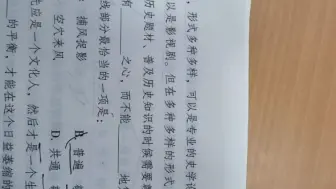 ，形式多种多样，可以是专业的史学论
以是影视剧。但在多种多样的形式
历史题材、普及历史知识的时候需要
有______之心，而不能______地
线部分最恰当的一项是：
捕风捉影 B. 普通
空穴来风 D. 共通
先应是一个文化人，然后才是一个生
______的平衡，才能在这个日益萎缩的